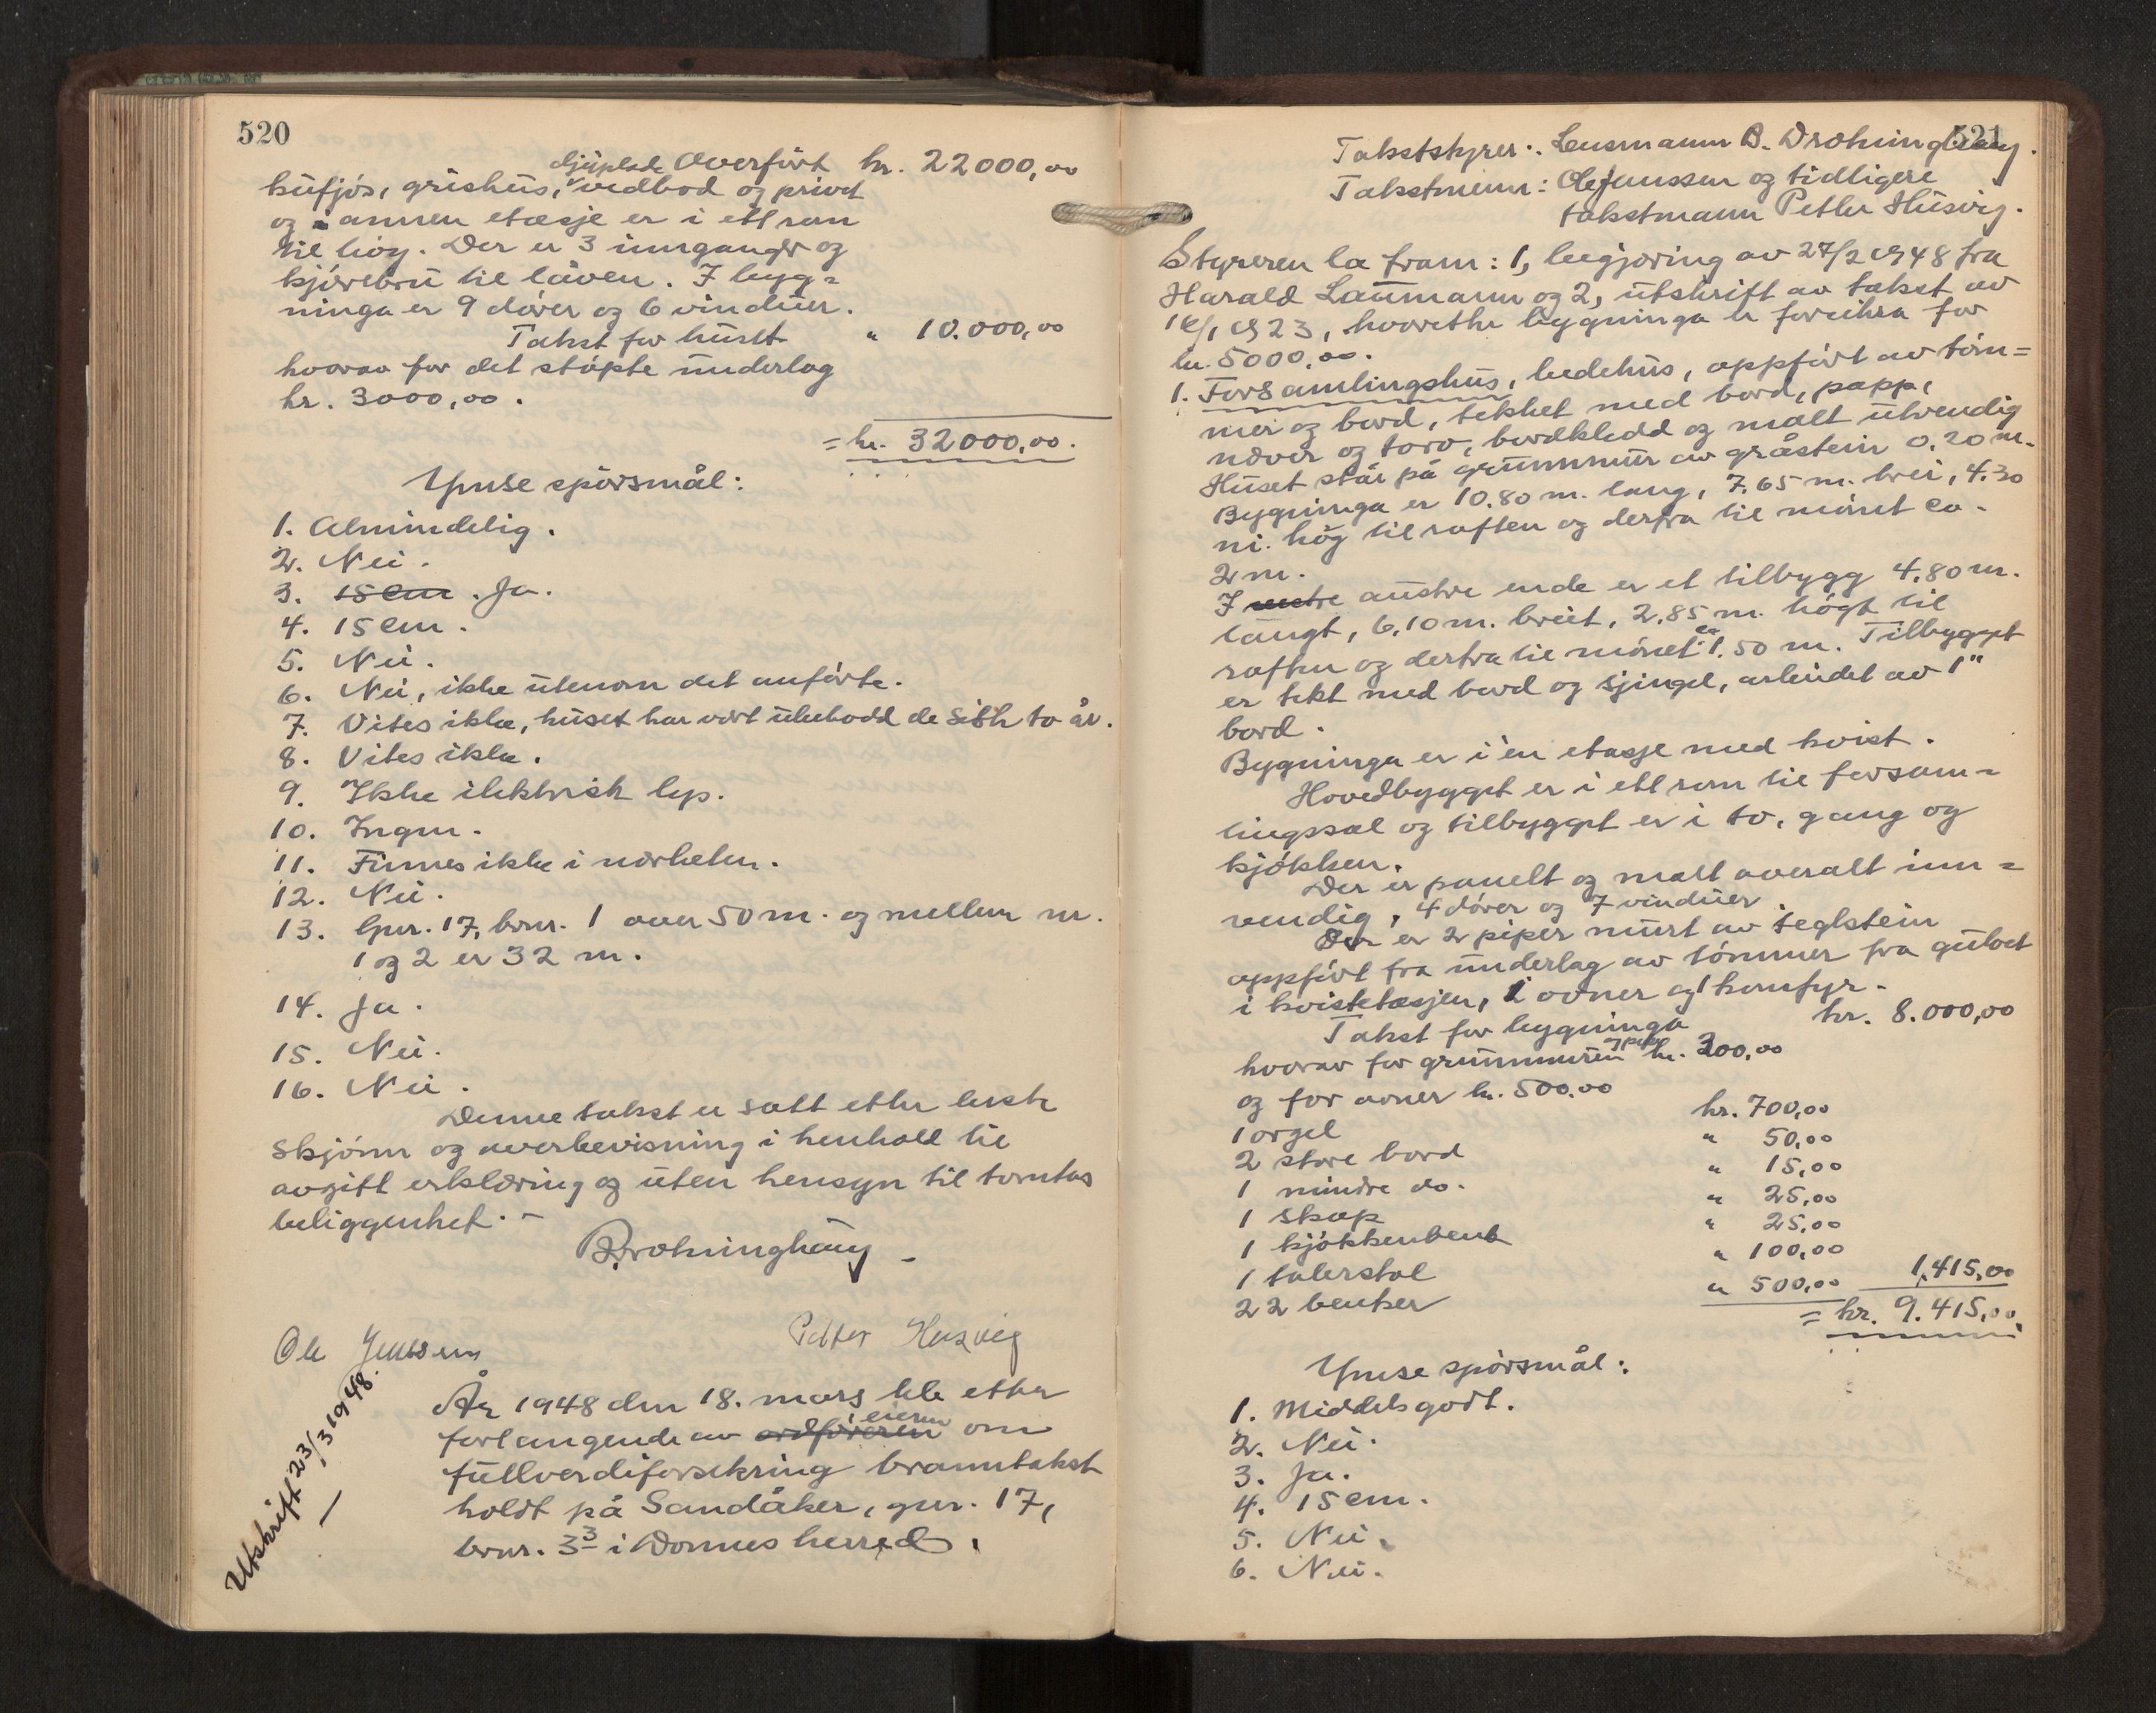 520
djuplade Overført kr. 22000,00
kufjøs, grishus, vedbod og privet
og i annen etasje er i ett rom
til høy. Der er 3 innganger og
kjørebru til låven. I byg=
ninga er 9 dører og 6 vinduer.
Takst for huset " 10.000,00
hvorav for det støpte underlag
kr. 3000,00.
= kr. 32000,00.
Ymse spørsmål:
1. Almindelig.
2. Nei.
3. 15 cm. Ja.
4. 15 cm.
5. Nei.
6. Nei, ikke utenom det anførte.
7. Vites ikke, huset har vært ubebodd de siste to år.
8. Vites ikke.
9. Ikke elektrisk lys.
10. Ingen.
11. Finnes ikke i nærheten.
12. Nei.
13. Gnr. 17, bnr. 1 over 50 m. og mellem nr.
1 og 2 er 32 m.
14. Ja.
15. Nei.
16. Nei.
Denne takst er satt etter beste
skjønn og overbevisning i henhold til
avgitt erklæring og uten hensyn til tomtas
beliggenhet. -
B. Drohninghaug -
Ole Jenssen Petter Husvig
Utskrift 23/3 1948.
År 1948 den 18. mars ble etter
forlangende av ordføreren eieren om
fullverdiforsikring branntakst
holdt på Sandåker, gnr. 17,
bnr. 3³ i Dønnes herred.
521
Takststyrer: Lensmann B. Drohninghaug.
Takstmenn: Ole Jenssen og tidligere
takstmann Petter Husvig.
Styreren la fram: 1, begjæring av 27/2 1948 fra
Harald Laumann og 2, utskrift av takst av
1923, hvoretter bygninga er forsikra for
kr. 5000,00.
1. Forsamlingshus, bedehus, oppført av tøm=
mer og bord, tekket med bord, papp,
never og torv, bordkledd og malt utvendig
Huset står på grunnmur av gråstein 0,20 m.
Bygninga er 10.80 m. lang, 7.65 m. brei, 4.30
m. høg til raften og derfra til mønet ca.
2 m.
I vestre austre ende er et tilbygg 4.80 m.
langt, 6,10 m. breit, 2.85 m. høgt til
raften og derfra til mønet ca. 1.50 m. Tilbygget
er tekt med bord og sjingel, arbeidet av 1"
bord.
Bygninga er i én etasje med kvist.
Hovedbygget er i ett rom til forsam=
lingssal og tilbygget er i to, gang og
kjøkken.
Der er panelt og malt overalt inn=
vendig, 4 dører og 7 vinduer.
Der er 2 piper murt av teglstein
oppført fra underlag av tømmer fra gulvet
i kvistetasjen, 2 ovner og 1 komfyr.
Takst for bygninga kr. 8.000,00
hvorav for grunnmuren og piper kr. 300,00
og for ovner kr. 500,00
1 orgel kr. 700,00
2 store bord " 50,00
1 mindre do. " 15,00
1 skap " 25,00
1 kjøkkenbenk " 25,00
1 talerstol " 100,00
22 benker " 500,00 1.415,00
= kr. 9.415,00.
Ymse spørsmål:
1. Middelsgodt.
2. Nei.
3. Ja.
4. 15 cm.
5. Nei.
6. Nei.